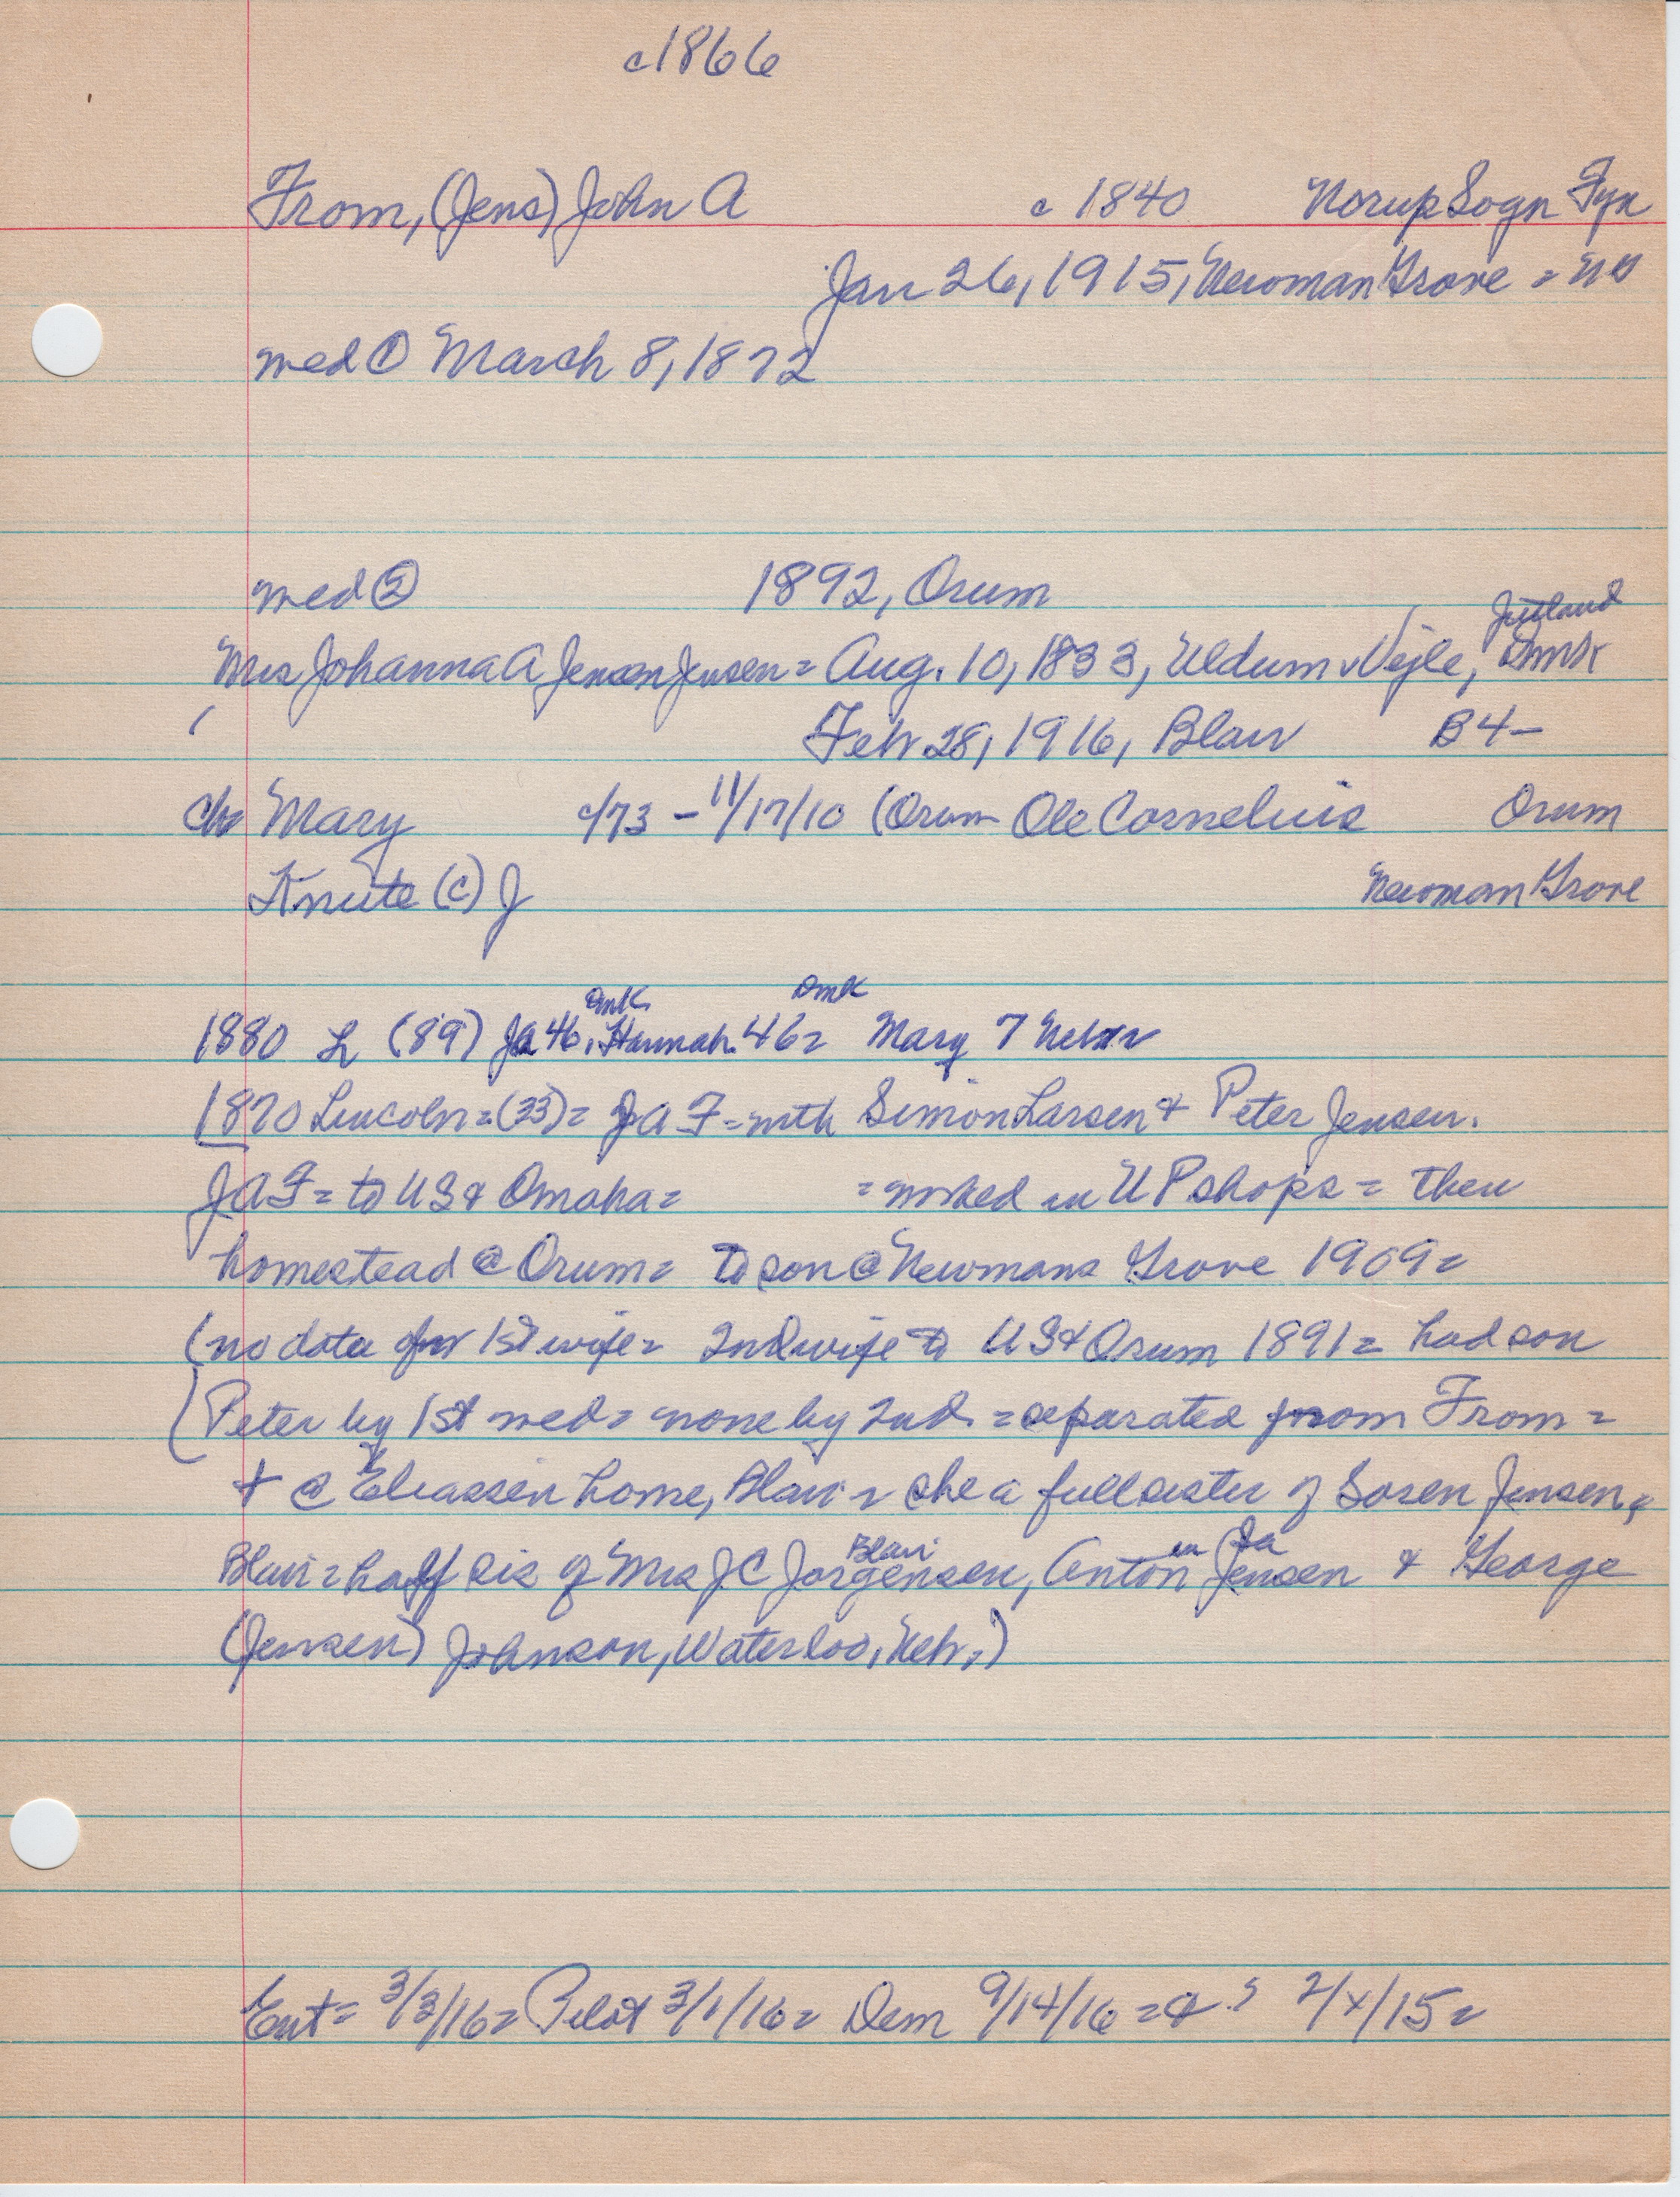 c1866
From, (Jens) John A c 1840 Norup Sogn Fyn
Jan 26, 1915, Newman Grove =
med ① March 8, 1872
med ② 1892, Orum
Jutland
Mrs Johanna A Jensen Jensen = Aug. 10, 1833, Uldum Vejle, Dmk
Feb 28, 1916, Blair B4-
ch Mary c/73 - 11/17/10 (Orum Ole Cornelius Orum
Knute (C) J Newman Grove
Dmk. Dmk
1880 L (89) Ja 46, Hannah 46 = Mary 7 Nebr
1870 Lincoln = (23) = JAF = with Simon Larsen & Peter Jensen.
JAF = to US & Omaha = = worked in UP shops = then
homestead @ Orum = To son @ Newmans Grove 1909 =
(no data for 1st wife = 2nd wife to US & Orum 1891 = had son
(Peter by 1st med = none by 2nd. = separated from From =
+ @ Eliassen home, Blair = she a full sister of Soren Jensen,
Blair in Ia
Blair = half sis of Mrs JC Jorgensen, Anton Jensen & George
(Jensen) Johnson, Waterloo, Nebr.)
Ent = 3/3/16 = Pilot 3/1/16 = Dem 9/14/16 = 2/x/15 =